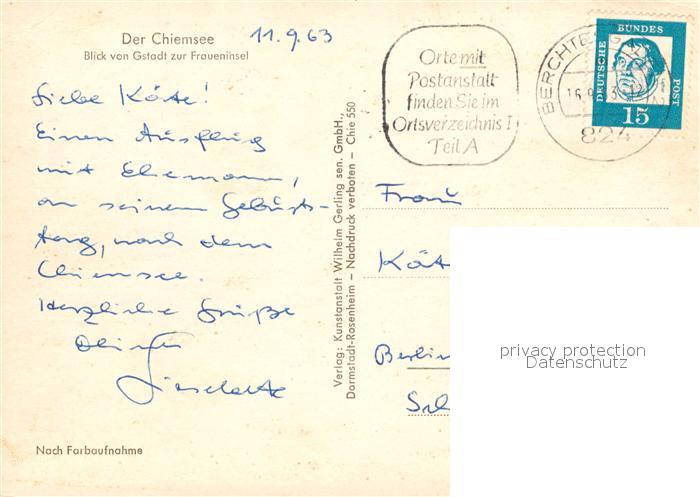 Der Chiemsee
Blick von Gstadt zur Fraueninsel
11.9.63
Liebe Käte!
Einen Ausflug
mit Ehemann,
an seinem Geburts-
tag, nach dem
Chiemsee.
Herzliche Grüße
Nach Farbaufnahme
Verlag: Kunstanstalt Wilhelm Gerling sen. GmbH.,
Darmstadt-Rosenheim – Nachdruck verboten – Chie 550
Orte mit
Postanstalt
finden Sie im
Ortsverzeichnis I
Teil A
824
DEUTSCHE
BUNDES
POST
15
Frau
Kät
Berlin
privacy protection
Datenschutz